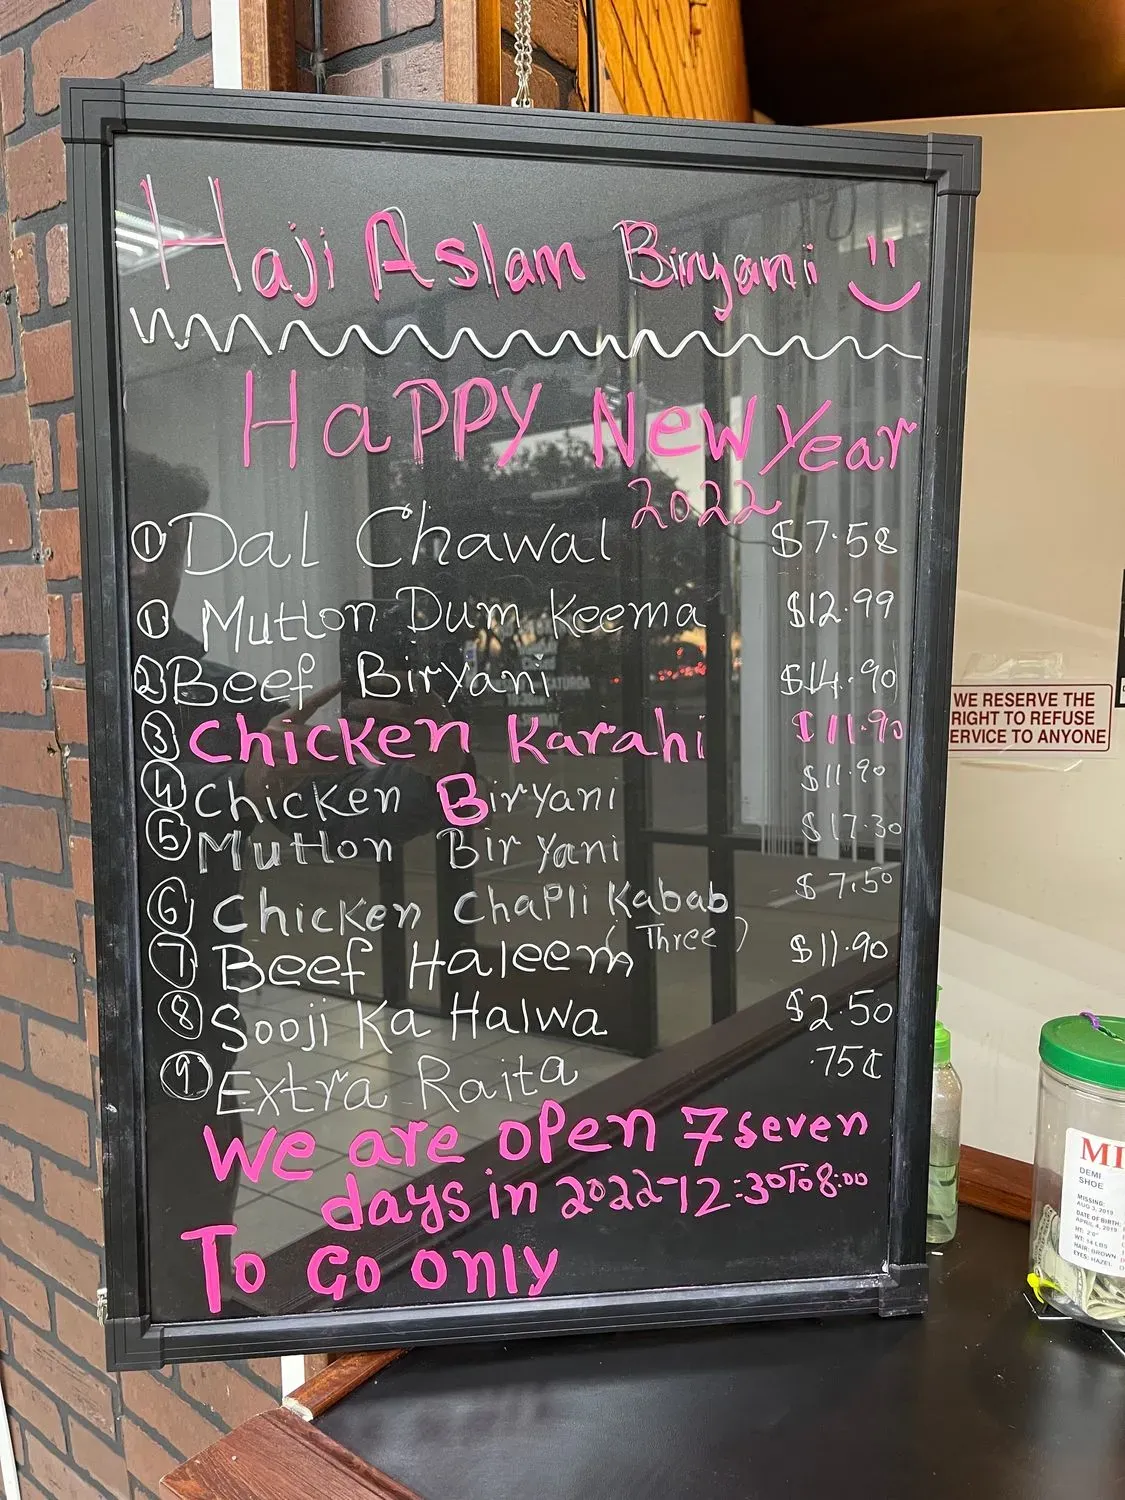 Haji Aslam Biryani
Happy New Year
2022
① Dal Chawal $7.58
① Mutton Dum Keema $12.99
② Beef Biryani $14.90
③ Chicken Karahi $11.90
④ Chicken Biryani $11.90
⑤ Mutton Biryani $17.30
⑥ Chicken Chapli Kabab $7.50
(Three)
⑦ Beef Haleem $11.90
⑧ Sooji Ka Halwa $2.50
⑨ Extra Raita .75¢
We are open 7 seven
days in 2022-12:30 To 8:00
To Go only
WE RESERVE THE
RIGHT TO REFUSE
ERVICE TO ANYONE
MI
DEMI
SHOE
MISSING:
AUG 3, 2019
DATE OF BIRTH:
APRIL 4, 2019
HT: 2'0"
WT: 14 LBS
HAIR: BROWN
EYES: HAZEL